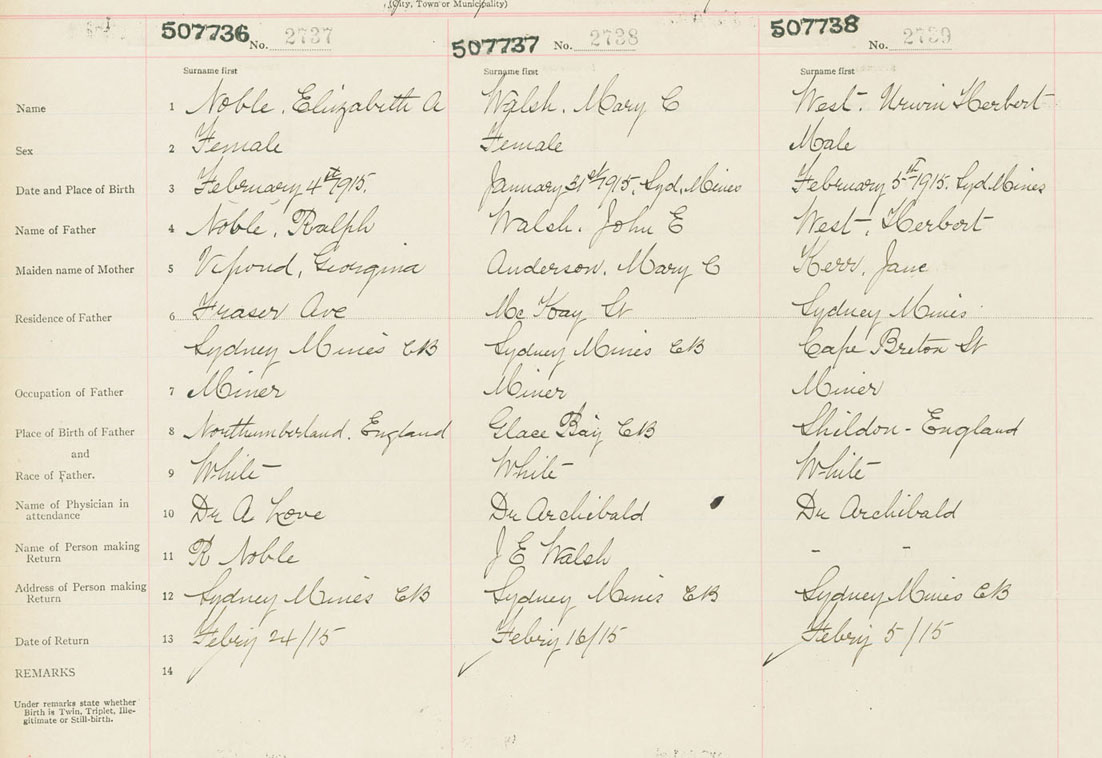 (City, Town or Municipality)
507736 No. 2737 507737 No. 2738 507738 No. 2739
Surname first Surname first Surname first
Name 1 Noble, Elizabeth A Walsh, Mary C West, Urwin Herbert
Sex 2 Female Female Male
Date and Place of Birth 3 February 4th 1915. January 31st 1915, Syd. Mines February 5th 1915. Syd. Mines
Name of Father 4 Noble, Ralph Walsh, John E West, Herbert
Maiden name of Mother 5 Vipond, Georgina Anderson, Mary C Kerr, Jane
Residence of Father 6 Fraser Ave McKay St Sydney Mines
Sydney Mines CB Sydney Mines CB Cape Breton St
Occupation of Father 7 Miner Miner Miner
Place of Birth of Father 8 Northumberland. England Glace Bay CB Shildon - England
and
Race of Father. 9 White White White
Name of Physician in
attendance 10 Dr A Love Dr Archibald Dr Archibald
Name of Person making
Return 11 R Noble J E Walsh - -
Address of Person making
Return 12 Sydney Mines CB Sydney Mines CB Sydney Mines CB
Date of Return 13 Febry 24/15 Febry 16/15 Febry 5/15
REMARKS 14
Under remarks state whether
Birth is Twin, Triplet, Ille-
gitimate or Still-birth.